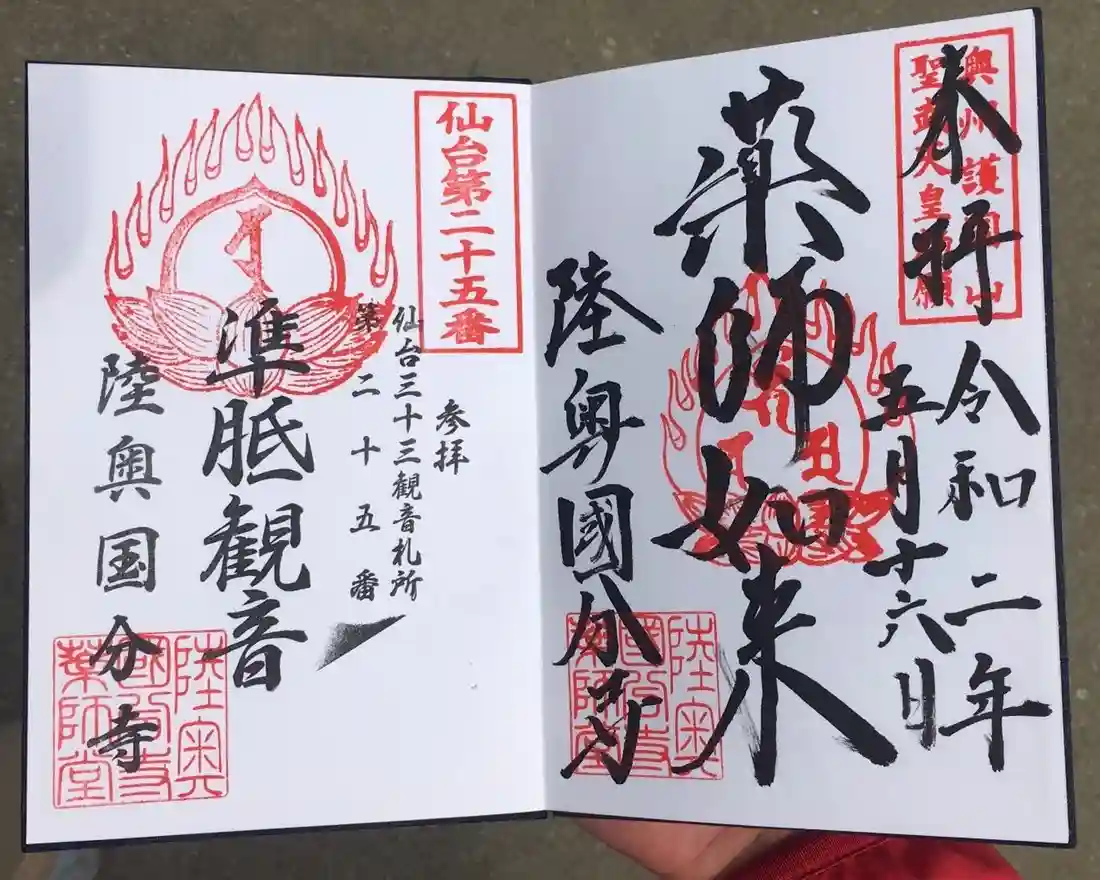 奉拝
奥州護国山
聖武天皇勅願
令和二年
五月十六日
薬師如来
陸奥國分寺
陸奥
國分寺
薬師堂
仙台第二十五番
参拝
仙台三十三観音札所
第二十五番
準胝観音
陸奥国分寺
陸奥
國分寺
薬師堂